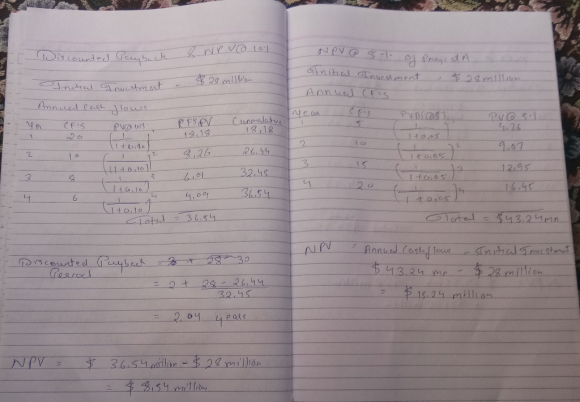 Discounted Payback & NPV@10%
Initial Investment = $28 million
Annual Cash flows
Year CF'S PV@10% PF$PV Cumulative
1 20 (1/1+0.10)¹ 18.18 18.18
2 10 (1/1+0.10)² 8.26 26.44
3 8 (1/1+0.10)³ 6.01 32.45
4 6 (1/1+0.10)⁴ 4.09 36.54
Total = 36.54
Discounted Payback
Period
= 2 + 28 - 26.44
32.45
= 2.04 years
NPV = $ 36.54 million - $ 28 million
= $ 8.54 million
NPV@ 5% of Project A
Initial Investment = $ 28 million
Annual CF's
Year CF's PV@5% PV@5%
1 5 (1/1+0.05) 4.76
2 10 (1/1+0.05)² 9.07
3 15 (1/1+0.05)³ 12.95
4 20 (1/1+0.05)⁴ 16.45
Total = $43.24mn
NPV = Annual Cashflow - Initial Investment
$43.24 mn - $ 28 million
= $ 15.24 million